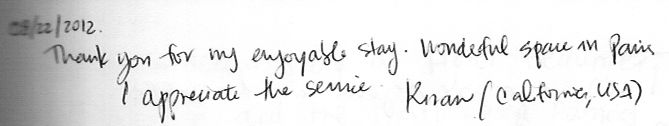 08/22/2012.
Thank you for my enjoyable stay. Wonderful space in Paris
I appreciate the service. Kiran (California, USA)